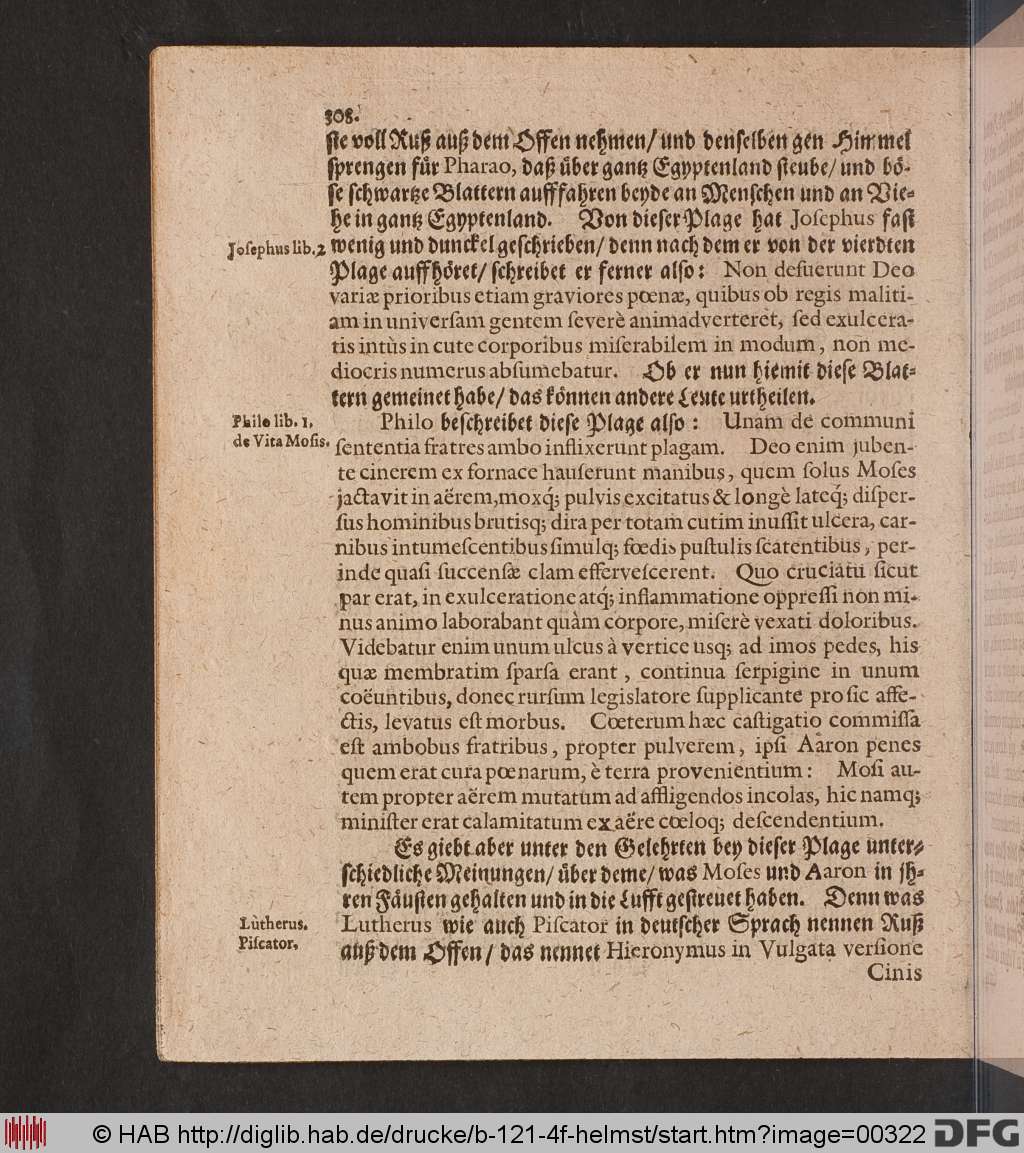 308.
ſie voll Ruß auß dem Offen nehmen/ und denſelben gen Himmel
ſprengen für Pharao, daß über gantz Egyptenland ſteube/ und bö-
ſe ſchwartze Blattern aufffahren beyde an Menſchen und an Vie-
he in gantz Egyptenland. Von dieſer Plage hat Joſephus faſt
Joſephus lib. 2
wenig und dunckel geſchrieben/ denn nach dem er von der vierdten
Plage auffhöret/ ſchreibet er ferner alſo: Non defuerunt Deo
variæ prioribus etiam graviores pœnæ, quibus ob regis maliti-
am in univerſam gentem ſeverè animadverteret, ſed exulcera-
tis intùs in cute corporibus miſerabilem in modum, non me-
diocris numerus abſumebatur. Ob er nun hiemit dieſe Blat-
tern gemeinet habe/ das können andere Leute urtheilen.
Philo lib. 1.
de Vita Moſis.
Philo beſchreibet dieſe Plage alſo: Unam de communi
ſententia fratres ambo inflixerunt plagam. Deo enim juben-
te cinerem ex fornace hauſerunt manibus, quem ſolus Moſes
jactavit in aërem, moxq́; pulvis excitatus & longè lateq́; diſper-
ſus hominibus brutisq; dira per totam cutim inuſſit ulcera, car-
nibus intumeſcentibus ſimulq; fœdis puſtulis ſcatentibus, per-
inde quaſi ſuccenſæ clam efferveſcerent. Quo cruciatu ſicut
par erat, in exulceratione atq́; inflammatione oppreſſi non mi-
nus animo laborabant quàm corpore, miſerè vexati doloribus.
Videbatur enim unum ulcus à vertice usq; ad imos pedes, his
quæ membratim ſparſa erant, continua ſerpigine in unum
coëuntibus, donec rurſum legislatore ſupplicante pro ſic affe-
ctis, levatus eſt morbus. Cœterum hæc caſtigatio commiſſa
eſt ambobus fratribus, propter pulverem, ipſi Aaron penes
quem erat cura pœnarum, è terra provenientium: Moſi au-
tem propter aërem mutatum ad affligendos incolas, hic namq;
miniſter erat calamitatum ex aëre cœloq; deſcendentium.
Es giebt aber unter den Gelehrten bey dieſer Plage unter-
ſchiedliche Meinungen/ über deme/ was Moſes und Aaron in jh-
ren Fäuſten gehalten und in die Lufft geſtreuet haben. Denn was
Lutherus.
Piſcator.
Lutherus wie auch Piſcator in deutſcher Sprach nennen Ruß
auß dem Offen/ das nennet Hieronymus in Vulgata verſione
Cinis
© HAB http://diglib.hab.de/drucke/b-121-4f-helmst/start.htm?image=00322
DFG